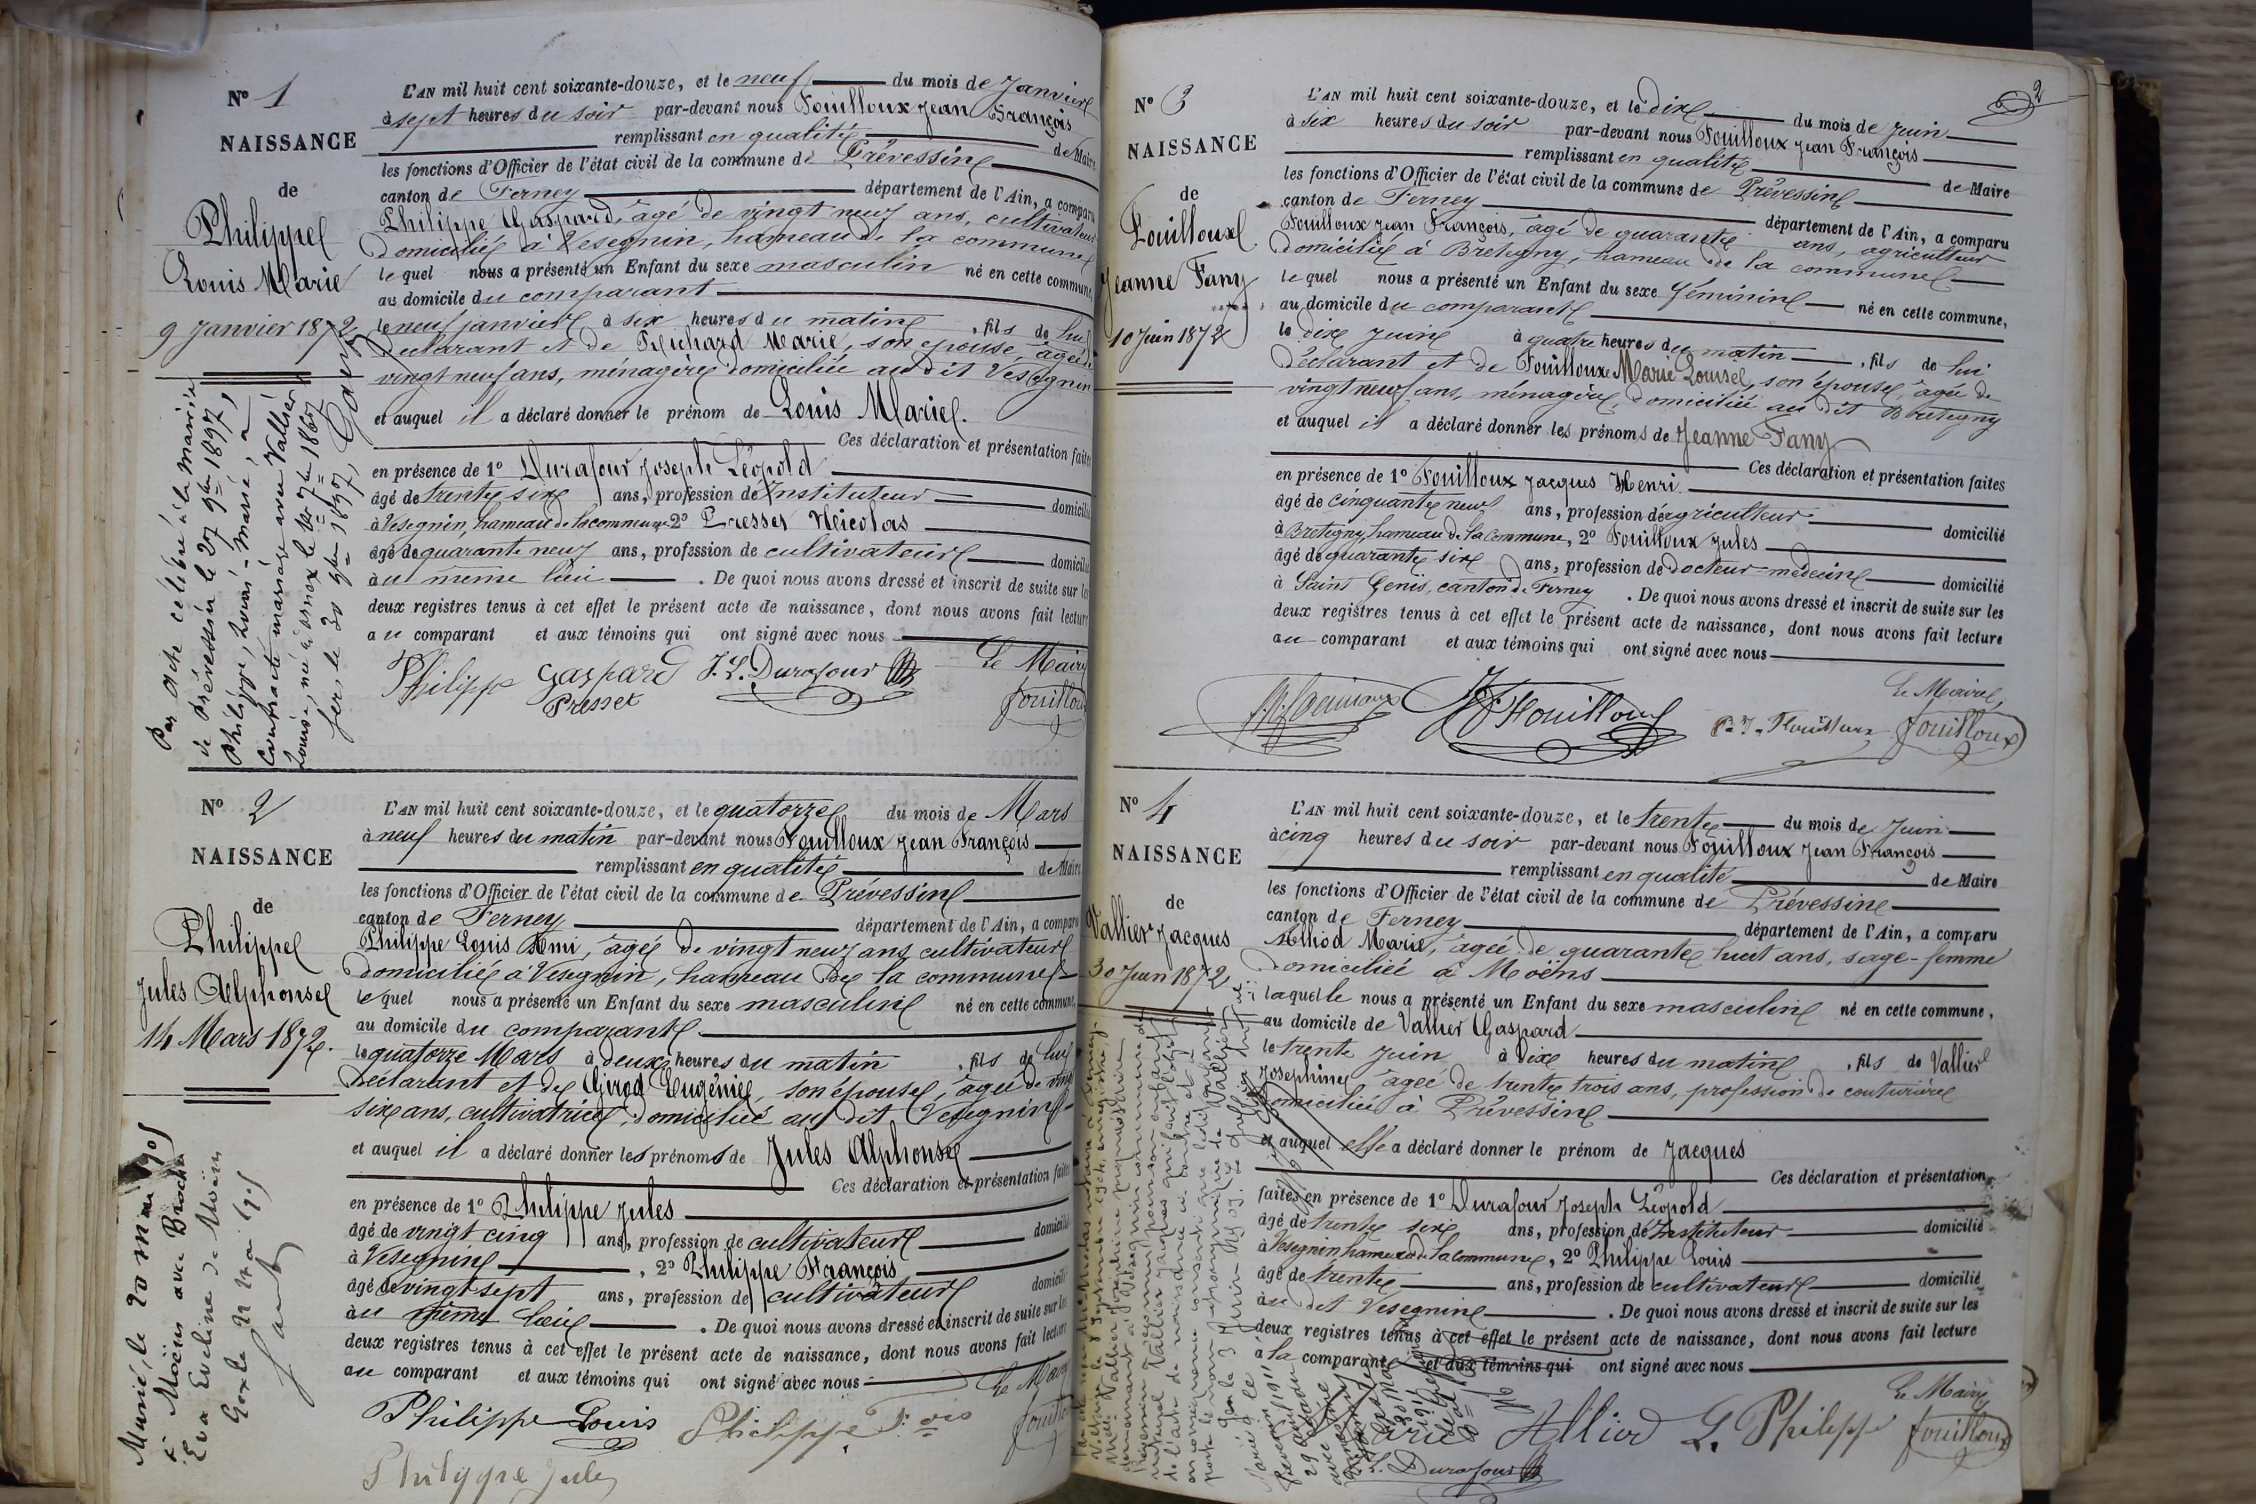 N° 1
NAISSANCE
de
Philippe
Louis Marie
9 Janvier 1872
L'AN mil huit cent soixante-douze, et le neuf du mois de Janvier
à sept heures du soir par-devant nous Fouilloux Jean François
remplissant en qualité de Maire
les fonctions d'Officier de l'état civil de la commune de Prévessin
canton de Ferney département de l'Ain, a comparu
Philippe Gaspard, âgé de vingt neuf ans, cultivateur
domicilié à Vesegnin, hameau de la commune
le quel nous a présenté un Enfant du sexe masculin né en cette commune,
au domicile du comparant
le neuf janvier à six heures du matin, fils de lui
déclarant et de Richard Marie, son épouse, âgée de
vingt neuf ans, ménagère domiciliée au dit Vesegnin
et auquel il a déclaré donner le prénom de Louis Marie.
Ces déclaration et présentation faites
en présence de 1° Durafour Joseph Léopold
âgé de trente six ans, profession de Instituteur domicilié
à Vesegnin, hameau de la commune 2° Presset Nicolas
âgé de quarante neuf ans, profession de cultivateur domicilié
au même lieu. De quoi nous avons dressé et inscrit de suite sur les
deux registres tenus à cet effet le présent acte de naissance, dont nous avons fait lecture
au comparant et aux témoins qui ont signé avec nous
Le Maire
Philippe Gaspard J. L. Durafour
Presset
Fouilloux
Par acte célébré à la mairie
de Prévessin le 27 9bre 1897,
Philippe, Louis-Marie, a
contracté mariage avec Vallier
Louise, née à Ornex le 7bre 1867
Gex, le 30 9bre 1897,
N° 2
NAISSANCE
de
Philippe
Jules Alphonse
14 Mars 1872.
L'AN mil huit cent soixante-douze, et le quatorze du mois de Mars
à neuf heures du matin par-devant nous Fouilloux Jean François
remplissant en qualité de Maire
les fonctions d'Officier de l'état civil de la commune de Prévessin
canton de Ferney département de l'Ain, a comparu
Philippe Louis Ami, âgé de vingt neuf ans cultivateur
domicilié à Vesegnin, hameau de la commune
le quel nous a présenté un Enfant du sexe masculin né en cette commune,
au domicile du comparant
le quatorze Mars à deux heures du matin, fils de lui
déclarant et de Girod Eugénie, son épouse, âgée de vingt
six ans, cultivatrice, domiciliée au dit Vesegnin
et auquel il a déclaré donner les prénoms de Jules Alphonse
Ces déclaration et présentation faites
en présence de 1° Philippe Jules
âgé de vingt cinq ans, profession de cultivateur domicilié
à Vesegnin, 2° Philippe François
âgé de vingt sept ans, profession de cultivateur domicilié
au même lieu. De quoi nous avons dressé et inscrit de suite sur les
deux registres tenus à cet effet le présent acte de naissance, dont nous avons fait lecture
au comparant et aux témoins qui ont signé avec nous
Le Maire
Philippe Louis Philippe F.ois
Philippe Jules
Marié, le 20 mai 1905
à Moëns avec Brochu
Eva Eveline de Moëns
Gex le 22 mai 1905
2
N° 3
NAISSANCE
de
Fouilloux
Jeanne Fany
10 Juin 1872
L'AN mil huit cent soixante-douze, et le dix du mois de Juin
à six heures du soir par-devant nous Fouilloux Jean François
remplissant en qualité de Maire
les fonctions d'Officier de l'état civil de la commune de Prévessin
canton de Ferney département de l'Ain, a comparu
Fouilloux Jean François, âgé de quarante ans, agriculteur
domicilié à Bretigny, hameau de la commune
le quel nous a présenté un Enfant du sexe féminin né en cette commune,
au domicile du comparant
le dix Juin à quatre heures du matin, fils de lui
déclarant et de Fouilloux Marie Louise, son épouse, âgée de
vingt neuf ans, ménagère, domiciliée au dit Bretigny
et auquel il a déclaré donner les prénoms de Jeanne Fany
Ces déclaration et présentation faites
en présence de 1° Fouilloux Jacques Henri
âgé de cinquante neuf ans, profession d'agriculteur domicilié
à Bretigny, hameau de la commune, 2° Fouilloux Jules
âgé de quarante six ans, profession de docteur-médecin domicilié
à Saint Genis, canton de Ferney. De quoi nous avons dressé et inscrit de suite sur les
deux registres tenus à cet effet le présent acte de naissance, dont nous avons fait lecture
au comparant et aux témoins qui ont signé avec nous
Le Maire,
Fouilloux
N° 4
NAISSANCE
de
Vallier Jacques
30 Juin 1872
L'AN mil huit cent soixante-douze, et le trente du mois de Juin
à cinq heures du soir par-devant nous Fouilloux Jean François
remplissant en qualité de Maire
les fonctions d'Officier de l'état civil de la commune de Prévessin
canton de Ferney département de l'Ain, a comparu
Alliod Marie, âgée de quarante huit ans, sage-femme
domiciliée à Moëns
laquelle nous a présenté un Enfant du sexe masculin né en cette commune,
au domicile de Vallier Gaspard
le trente Juin à dix heures du matin, fils de Vallier
Josephine âgée de trente trois ans, profession de couturière
domiciliée à Prévessin
et auquel elle a déclaré donner le prénom de Jacques
Ces déclaration et présentation
faites en présence de 1° Durafour Joseph Léopold
âgé de trente six ans, profession de Instituteur domicilié
à Vesegnin hameau de la commune, 2° Philippe Louis
âgé de trente ans, profession de cultivateur domicilié
au dit Vesegnin. De quoi nous avons dressé et inscrit de suite sur les
deux registres tenus à cet effet le présent acte de naissance, dont nous avons fait lecture
à la comparante et aux témoins qui ont signé avec nous
Le Maire
Marie Alliod L. Philippe Fouilloux
J. L. Durafour